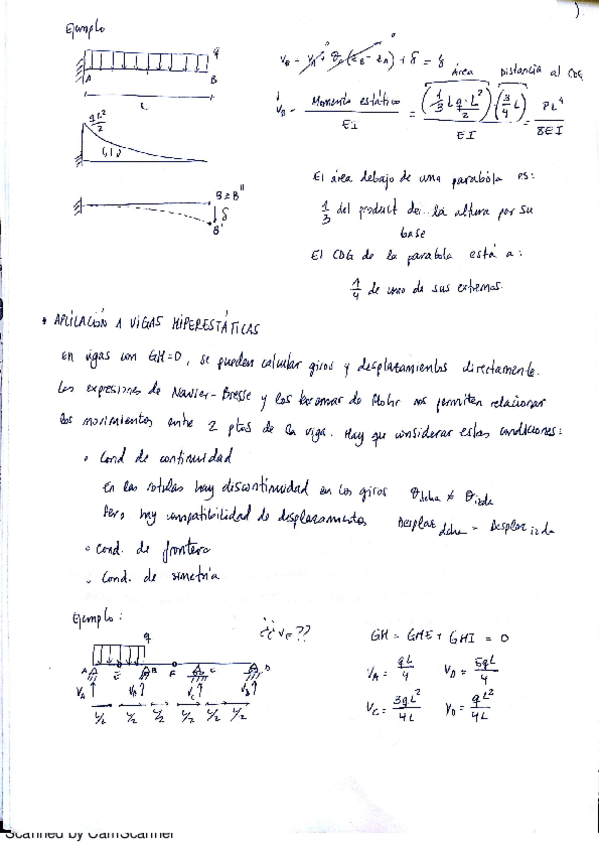 Ejemplo
q
A B
L
qL²/2
B≡B''
δ
B'
v_B = v_A + θ_A (z_B - z_A) + δ = δ
Área Distancia al CDG
v_B = Momento estático / EI = (1/3 L q·L²/2)·(3/4 L) / EI = PL⁴ / 8EI
El área debajo de una parábola es:
1/3 del product de la altura por su
base
El CDG de la parabola está a:
1/4 de uno de sus extremos.
* APLICACIÓN A VIGAS HIPERESTÁTICAS
En vigas con GH=0, se pueden calcular giros y desplazamientos directamente.
Las expresiones de Navier-Bresse y los teoremas de Mohr nos permiten relacionar
los movimientos entre 2 ptos de la viga. Hay que considerar estas condiciones:
• Cond de continuidad
En las rotulas hay discontinuidad en los giros θdcha ≠ θizda
Pero hay compatibilidad de desplazamientos Desplaz dcha = Desplaz izda
• Cond. de frontera
• Cond. de simetría
Ejemplo:
¿¿v_E??
q
A E B F C D
V_A V_B V_C V_D
L/2 L/2 L/2 L/2 L/2 L/2
GH = GHE + GHI = 0
V_A = qL/4 V_B = 5qL/4
V_C = 3qL²/4L V_D = qL²/4L
Scanned by CamScanner